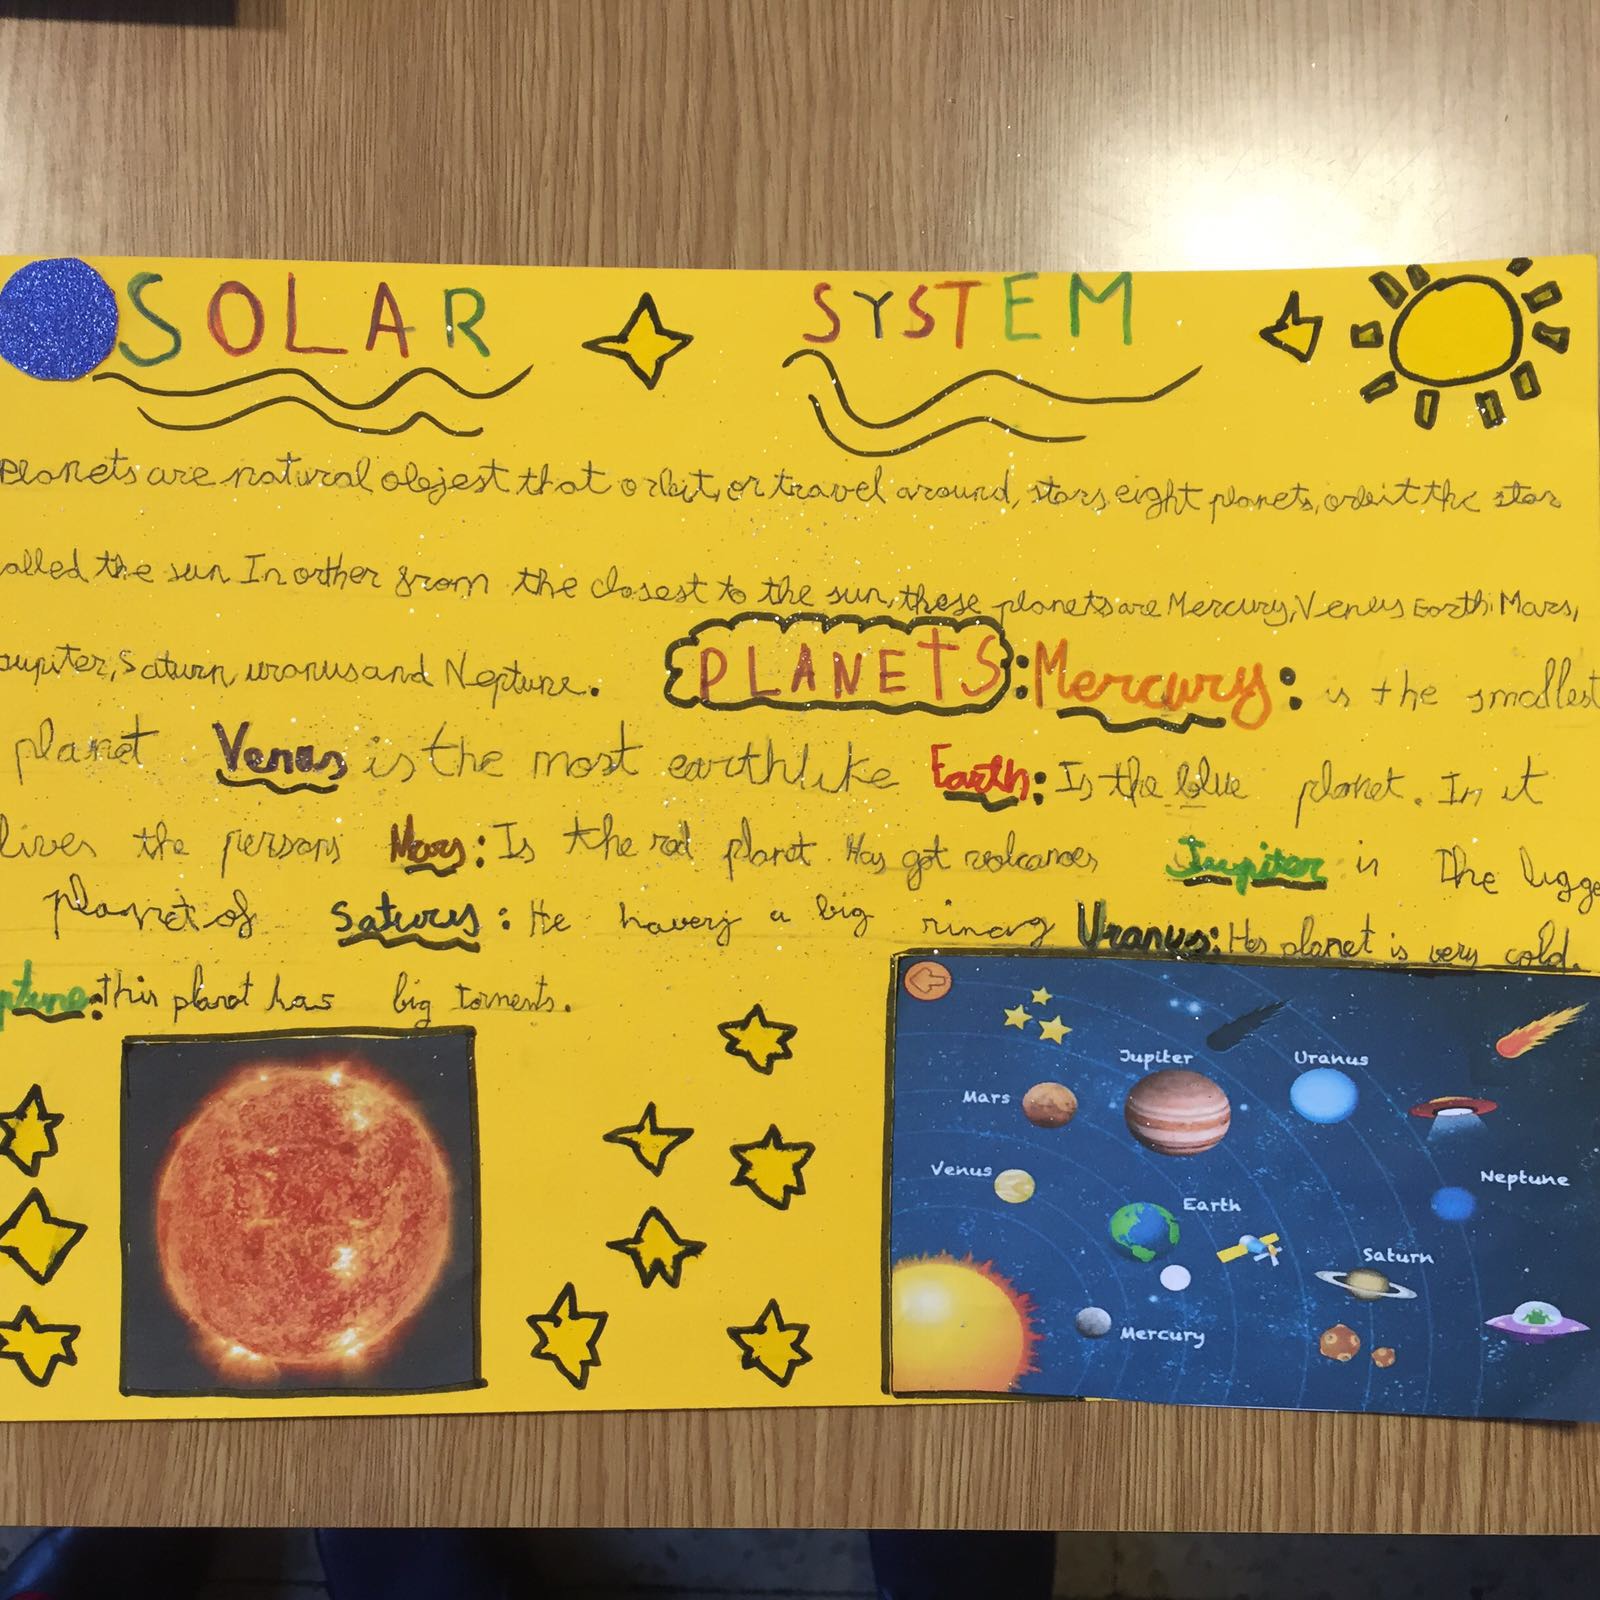 SOLAR SYSTEM
Planets are natural objest that orbit, or travel around, stars, eight planets, orbit the star
alled the sun In orther from the closest to the sun, these planets are Mercury, Venus Earth Mars,
Jupiter, Saturn, uranus and Neptune. PLANETS: Mercury: is the smallest
planet Venus is the most earthlike Earth: Is the blue planet. In it
lives the persons Mars: Is the red planet Has got volcanoes Jupiter is The bigge
planet of Saturus: He a big Uranus: planet is very cold.
ptune: this planet has big torments.
Jupiter Uranus
Mars
Venus
Neptune
Earth
Saturn
Mercury